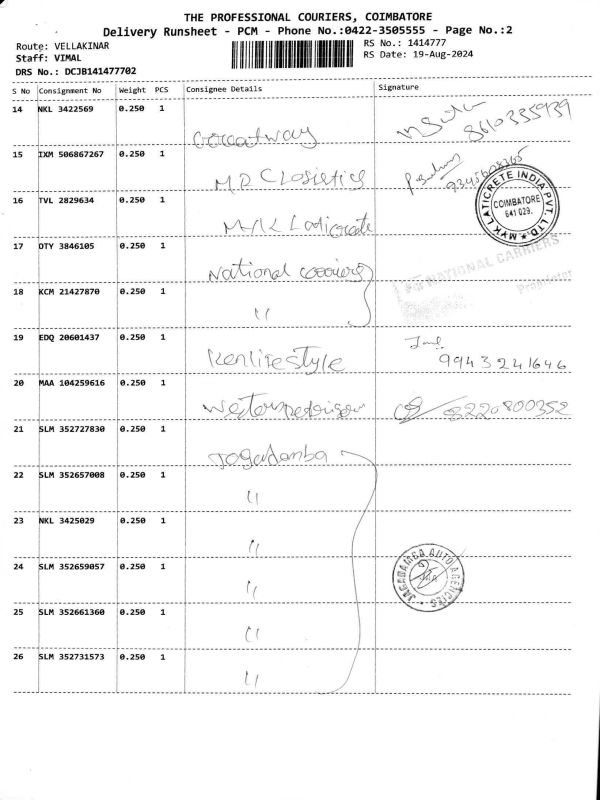 THE PROFESSIONAL COURIERS, COIMBATORE
Delivery Runsheet - PCM - Phone No.:0422-3505555 - Page No.:2
Route: VELLAKINAR
RS No.: 1414777
Staff: VIMAL
RS Date: 19-Aug-2024
DRS No.: DCJB141477702
S No Consignment No Weight PCS Consignee Details Signature
14 NKL 3422569 0.250 1 8610335939
15 IXM 506867267 0.250 1 M.D
16 TVL 2829634 0.250 1
MYK LATICRETE INDIA PVT. LTD.
COIMBATORE
641 029.
17 OTY 3846105 0.250 1 National
NATIONAL CARRIERS
Proprietor
18 KCM 21427870 0.250 1 "
19 EDQ 20601437 0.250 1 Kenlifestyle 9943241646
20 MAA 104259616 0.250 1 8220800352
21 SLM 352727830 0.250 1 Jagadamba
22 SLM 352657008 0.250 1 "
23 NKL 3425029 0.250 1 "
24 SLM 352659057 0.250 1 "
JAGADAMBA AUTO AGENCIES
25 SLM 352661360 0.250 1 "
26 SLM 352731573 0.250 1 "